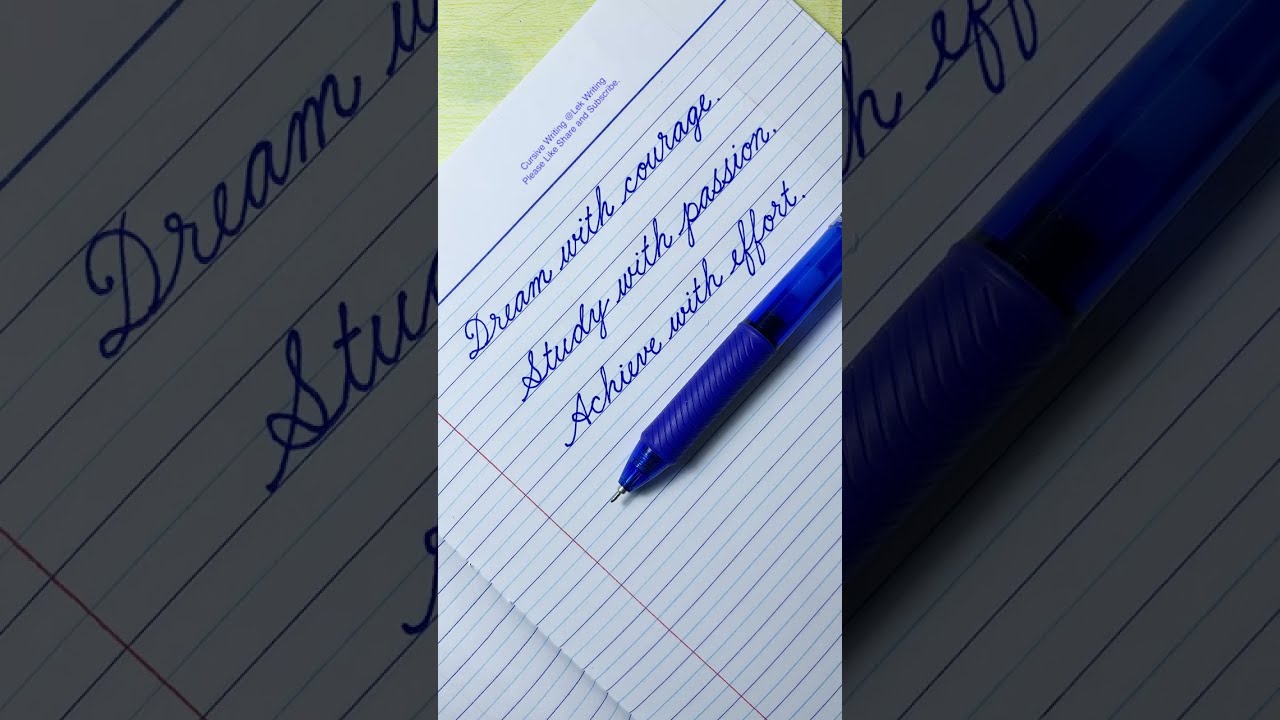 Cursive Writing @Lek Writing
Please Like Share and Subscribe.
Dream with courage.
Study with passion.
Achieve with effort.